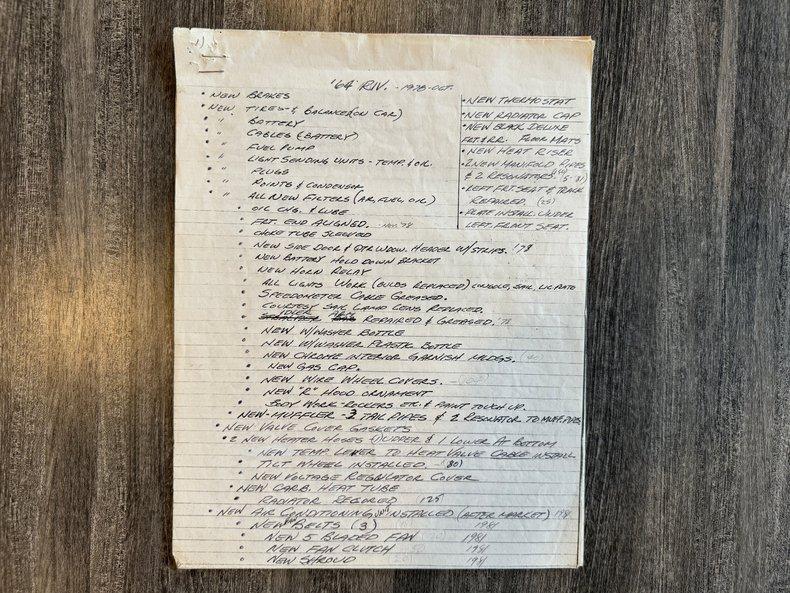 '64 RIV. - 1978-OCT.
• NEW BRAKES
• NEW TIRES & BALANCE (ON CAR)
• " BATTERY
• " CABLES (BATTERY)
• " FUEL PUMP
• " LIGHT SENDING UNITS - TEMP. & OIL
• " PLUGS
• " POINTS & CONDENSOR
• " ALL NEW FILTERS (AIR, FUEL, OIL)
• OIL CHG. & LUBE
• FRT. END ALIGNED. - NOV. '78
• CHOKE TUBE SLEEVED
• NEW SIDE DOOR & QTR. WDOW. HEADER W/STRIPS. '78
• NEW BATTERY HOLD DOWN BRACKET
• NEW HORN RELAY
• ALL LIGHTS WORK (BULBS REPLACED) CONSOLE, SAIL, LIC PLATE
• SPEEDOMETER CABLE GREASED.
• COURTESY SAIL LAMP LENS REPLACED.
• IDLER REPAIRED & GREASED.
• NEW W/WASHER BOTTLE
• NEW W/WASHER PLASTIC BOTTLE
• NEW CHROME INTERIOR GARNISH MLDGS.
• NEW GAS CAP.
• NEW WIRE WHEEL COVERS.
• NEW "R" HOOD ORNAMENT
• BODY WORK - ROCKERS ETC. & PAINT TOUCH UP.
• NEW - MUFFLER - 2 TAIL PIPES & 2 RESONATOR TO MUFF. PIPES
• NEW VALVE COVER GASKETS
• 2 NEW HEATER HOSES 1) UPPER & 1 LOWER AT BOTTOM
• NEW TEMP. LEVER TO HEAT VALVE CABLE INSTALL
• TILT WHEEL INSTALLED - '80)
• NEW VOLTAGE REGULATOR COVER
• NEW CARB. HEAT TUBE
• RADIATOR RECORED 125
• NEW AIR CONDITIONING UNIT INSTALLED (AFTER MARKET) 1981
• NEW BELTS (3) 1981
• NEW 5 BLADED FAN 1981
• NEW FAN CLUTCH 1981
• NEW SHROUD 1981
• NEW THERMOSTAT
• NEW RADIATOR CAP
• NEW BLACK DELUXE
FRT. & RR. FLOOR MATS
• NEW HEAT RISER
• 2 NEW MANIFOLD PIPES
& 2 RESONATORS 5-81)
• LEFT FRT. SEAT & TRACK
REPAIRED. (25)
• PLATE INSTALL. UNDER
LEFT FRONT SEAT.